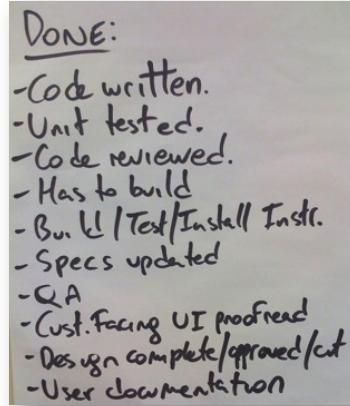 DONE:
-Code written.
-Unit tested.
-Code reviewed.
-Has to build
-Build/Test/Install Instr.
-Specs updated
-QA
-Cust. Facing UI proofread
-Design complete/approved/cut
-User documentation